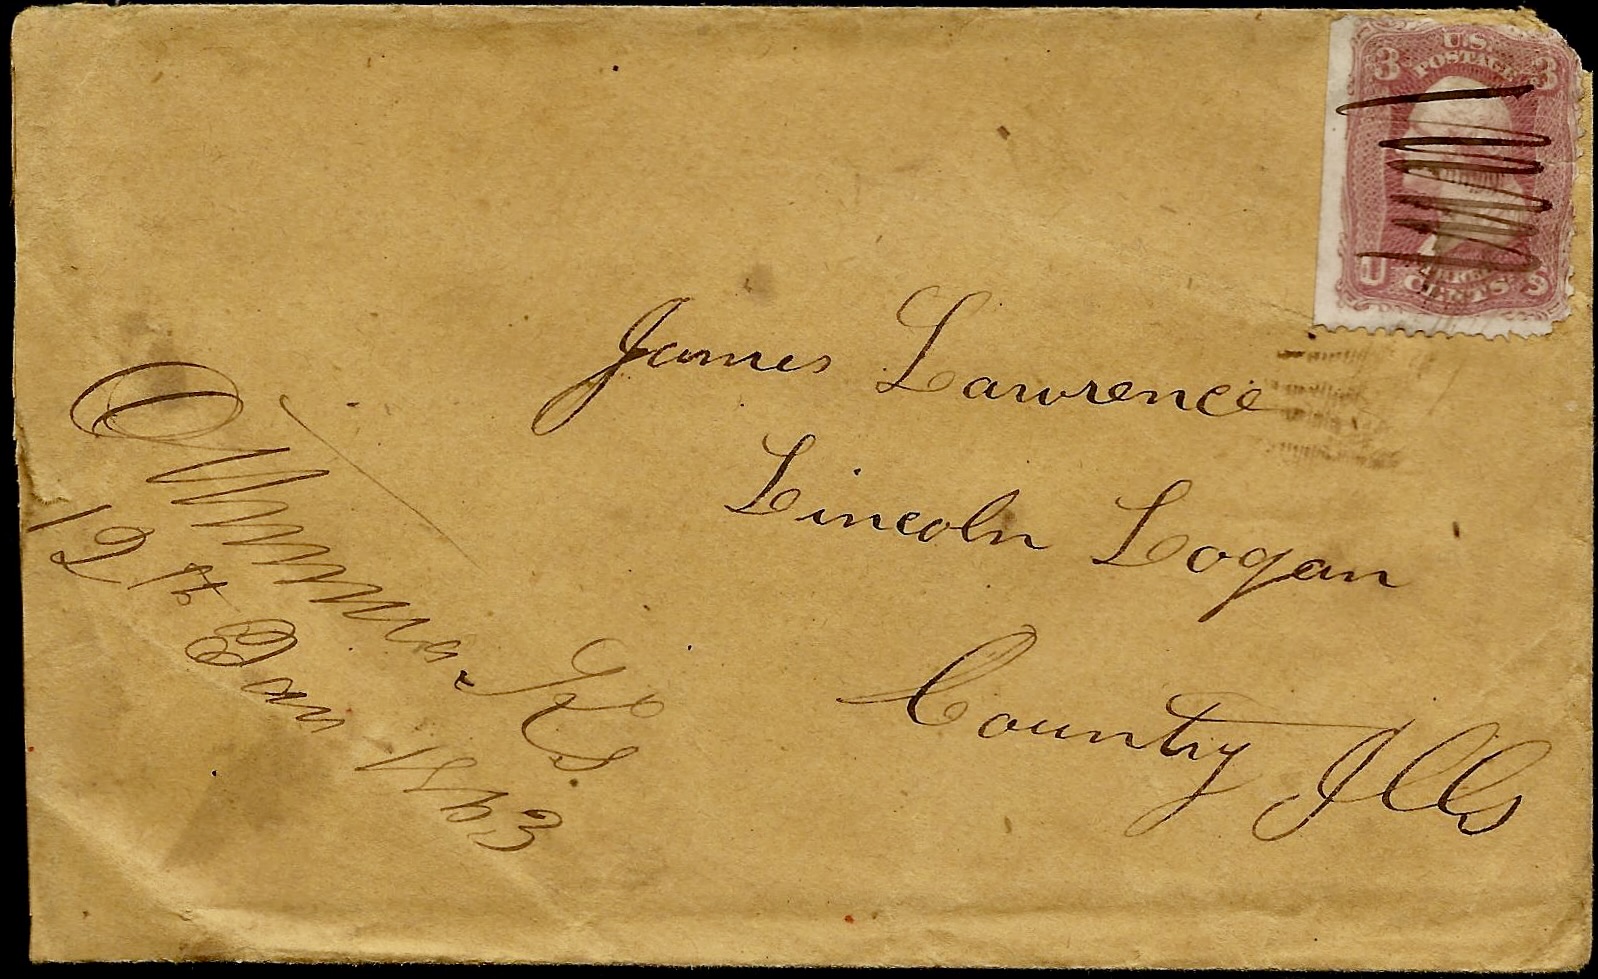 U.S.
POSTAGE
3 3
U S
THREE
CENTS
James Lawrence
Lincoln Logan
County Ills
Ks.
12th Jan 1863